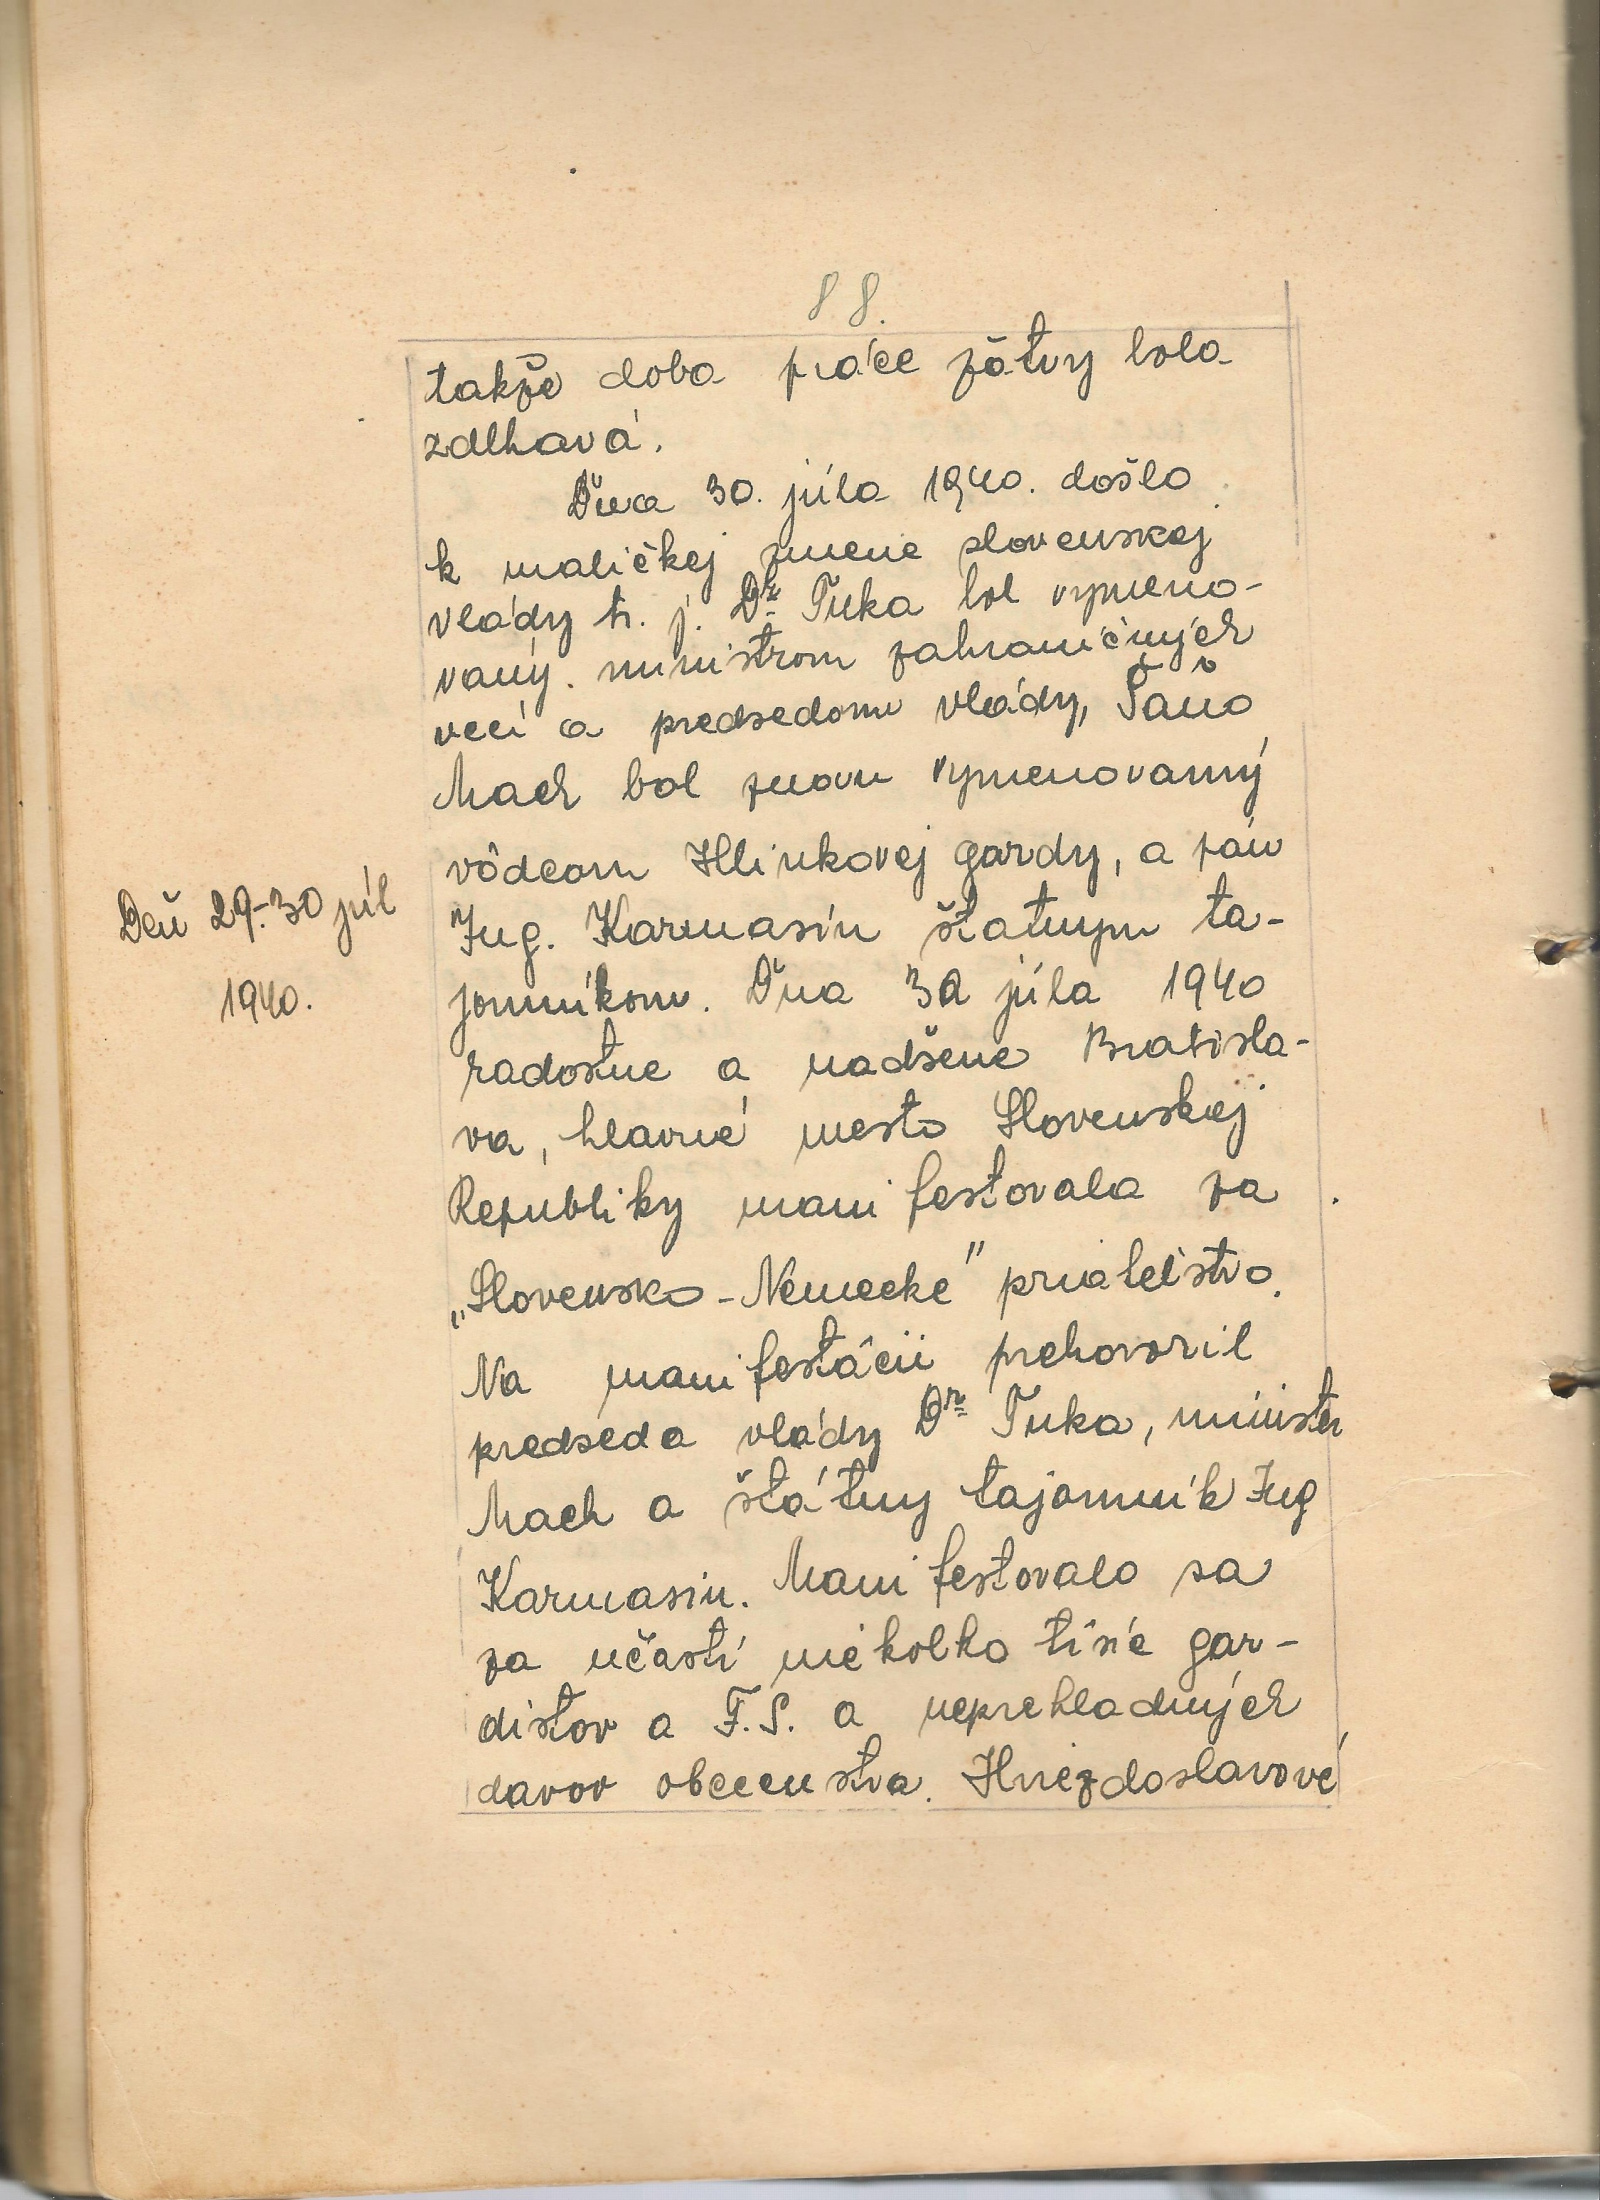 88.
takže doba práce žatvy bola
zdlhavá.
Dňa 30. júla 1940. došlo
k maličkej zmene slovenskej
vlády t. j. Dr Tuka bol vymeno-
vaný. ministrom zahraničných
vecí a predsedom vlády, Šaňo
Mach bol znovu vymenovanný
vôdcom Hlinkovej gardy, a pán
Ing. Karmasín štatnym ta-
jomníkom. Dňa 30 júla 1940
radostne a nadšene Bratisla-
va, hlavné mesto Slovenskej
Republiky manifestovala za
„Slovensko-Nemecké" priatelstvo.
Na manifestácii prehovoril
predseda vlády Dr Tuka, minister
Mach a štátny tajomník Ing
Karmasin. Manifestovalo sa
za učasti niekolko tisíc gar-
distov a F.S. a neprehladných
davov obecenstva. Hniezdoslavové
Deň 29.-30 júl
1940.